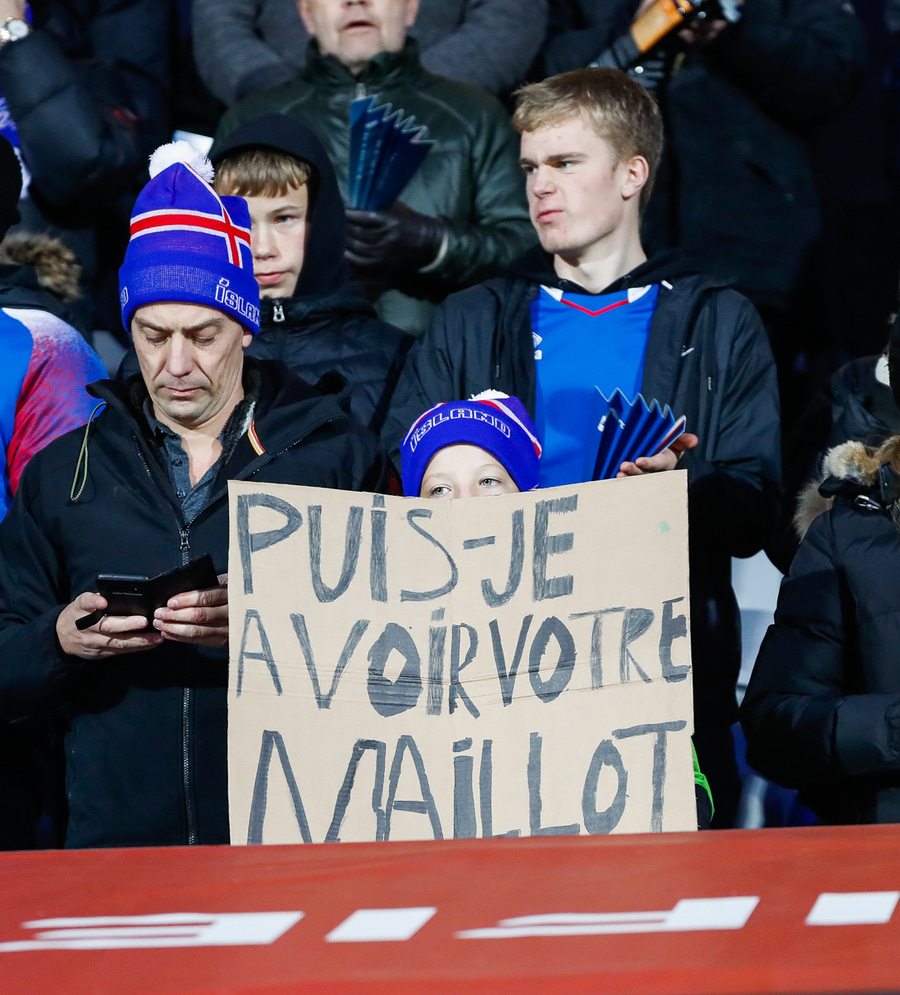 íSLAN
íSLAND
PUiS-JE
AVOiR VOTRE
MAiLLOT